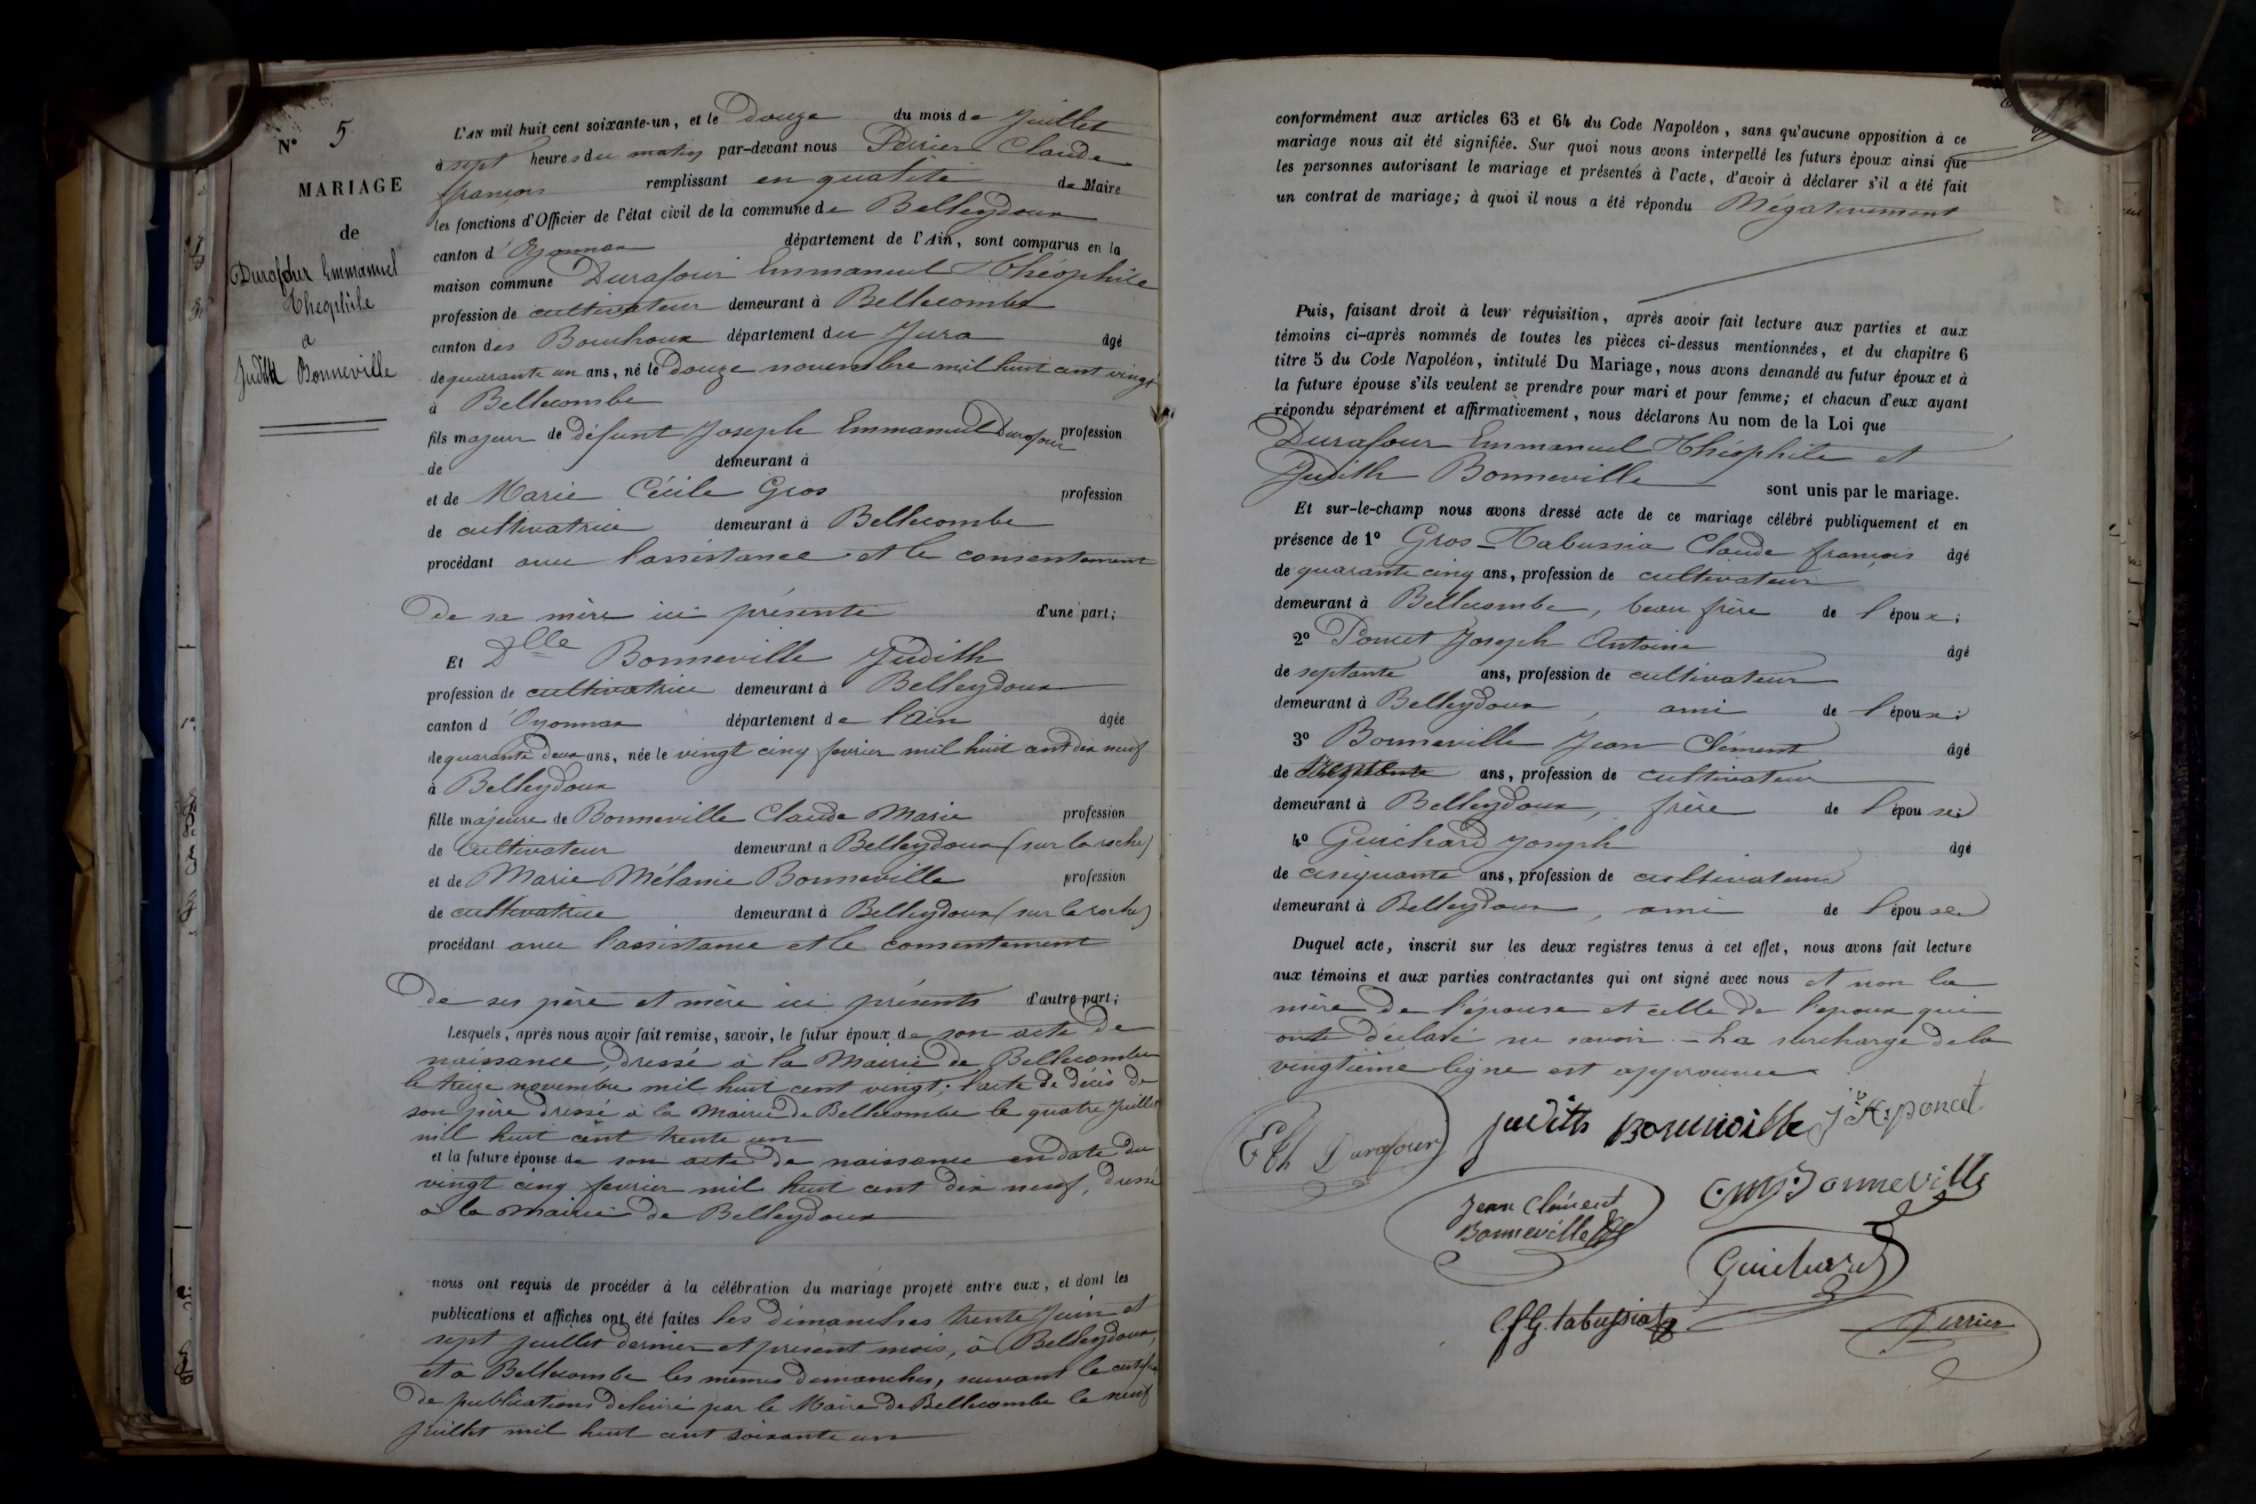 N° 5
MARIAGE
de
Durafour Emmanuel
Théophile
à
Judith Bonneville
L'AN mil huit cent soixante-un, et le Douze du mois de Juillet
à sept heures du matin par-devant nous Perrier Claude
françois remplissant en qualité de Maire
les fonctions d'Officier de l'état civil de la commune de Belleydoux
canton d'Oyonnax département de l'Ain, sont comparus en la
maison commune Durafour Emmanuel Théophile
profession de cultivateur demeurant à Bellecombe
canton des Bouchoux département du Jura âgé
de quarante un ans, né le Douze novembre mil huit cent vingt
à Bellecombe
fils majeur de défunt Joseph Emmanuel Durafour profession
de demeurant à
et de Marie Cécile Gros profession
de cultivatrice demeurant à Bellecombe
procédant avec l'assistance et le consentement
De sa mère ici présente d'une part;
Et Dlle Bonneville Judith
profession de cultivatrice demeurant à Belleydoux
canton d'Oyonnax département de l'Ain âgée
de quarante deux ans, née le vingt cinq fevrier mil huit cent dix neuf
à Belleydoux
fille majeure de Bonneville Claude Marie profession
de cultivateur demeurant à Belleydoux (sur la roche)
et de Marie Mélanie Bonneville profession
de cultivatrice demeurant à Belleydoux (sur la roche)
procédant avec l'assistance et le consentement
De ses père et mère ici présents d'autre part;
Lesquels, après nous avoir fait remise, savoir, le futur époux de son acte de
naissance, dressé à la Mairie de Bellecombe
le treize novembre mil huit cent vingt; l'acte de décès de
son père dressé à la Mairie de Bellecombe le quatre Juillet
mil huit cent trente un
et la future épouse de son acte de naissance en date du
vingt cinq fevrier mil huit cent dix neuf, dressé
à la Mairie de Belleydoux
nous ont requis de procéder à la célébration du mariage projeté entre eux, et dont les
publications et affiches ont été faites les Dimanches trente Juin et
sept Juillet dernier et présent mois, à Belleydoux,
et à Bellecombe les mêmes dimanches, suivant le certificat
De publications délivré par le Maire de Bellecombe le neuf
Juillet mil huit cent soixante un
conformément aux articles 63 et 64 du Code Napoléon, sans qu'aucune opposition à ce
mariage nous ait été signifiée. Sur quoi nous avons interpellé les futurs époux ainsi que
les personnes autorisant le mariage et présentés à l'acte, d'avoir à déclarer s'il a été fait
un contrat de mariage; à quoi il nous a été répondu Négativement
Puis, faisant droit à leur réquisition, après avoir fait lecture aux parties et aux
témoins ci-après nommés de toutes les pièces ci-dessus mentionnées, et du chapitre 6
titre 5 du Code Napoléon, intitulé Du Mariage, nous avons demandé au futur époux et à
la future épouse s'ils veulent se prendre pour mari et pour femme; et chacun d'eux ayant
répondu séparément et affirmativement, nous déclarons Au nom de la Loi que
Durafour Emmanuel Théophile et
Judith Bonneville sont unis par le mariage.
Et sur-le-champ nous avons dressé acte de ce mariage célébré publiquement et en
présence de 1° Gros-Tabussia Claude françois âgé
de quarante cinq ans, profession de cultivateur
demeurant à Bellecombe, beau frère de l'époux;
2° Poncet Joseph Antoine âgé
de septante ans, profession de cultivateur
demeurant à Belleydoux, ami de l'époux;
3° Bonneville Jean Clément âgé
de ans, profession de cultivateur
demeurant à Belleydoux, frère de l'épouse;
4° Guichard Joseph âgé
de cinquante ans, profession de cultivateur
demeurant à Belleydoux, ami de l'épouse
Duquel acte, inscrit sur les deux registres tenus à cet effet, nous avons fait lecture
aux témoins et aux parties contractantes qui ont signé avec nous et non la
mère de l'épouse et celle de l'epoux qui
ont déclaré ne savoir - La surcharge de la
vingtième ligne est approuvée
Eth Durafour Judith Bonneville Jh A. poncet
Jean Clément
Bonneville C.M. Bonneville
Guichard
C.f.G. tabussiat Perrier